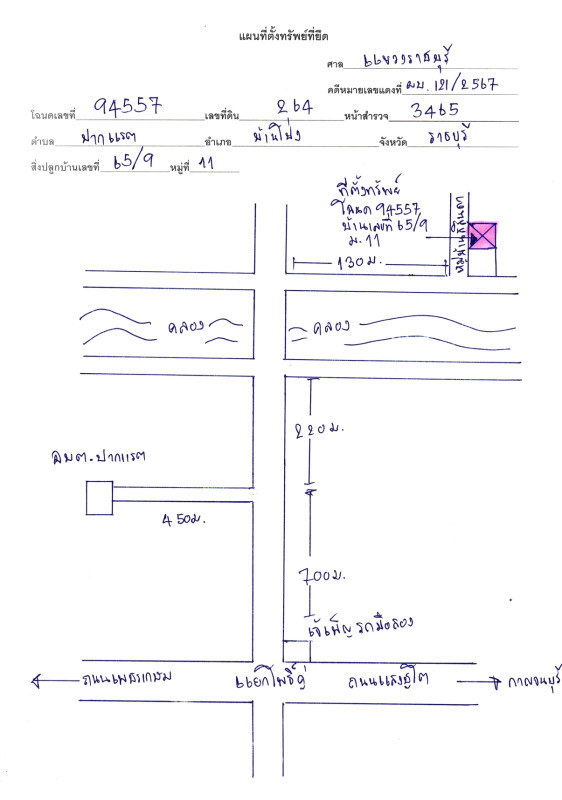 แผนที่ตั้งทรัพย์ที่ยึด
ศาล แขวงราชบุรี
คดีหมายเลขแดงที่ ผบ. 121/2567
โฉนดเลขที่ 94557 เลขที่ดิน 264 หน้าสำรวจ 3465
ตำบล ปากแรต อำเภอ บ้านโป่ง จังหวัด ราชบุรี
สิ่งปลูกบ้านเลขที่ 65/9 หมู่ที่ 11
ที่ตั้งทรัพย์
โฉนด 94557
บ้านเลขที่ 65/9
ม.11
130ม.
คลอง
คลอง
220ม.
อบต.ปากแรต
450ม.
700ม.
เจ๊เพ็ญ รถมือสอง
ถนนเพชรเกษม แยกโพธิ์คู่ ถนนแสงชูโต กาญจนบุรี